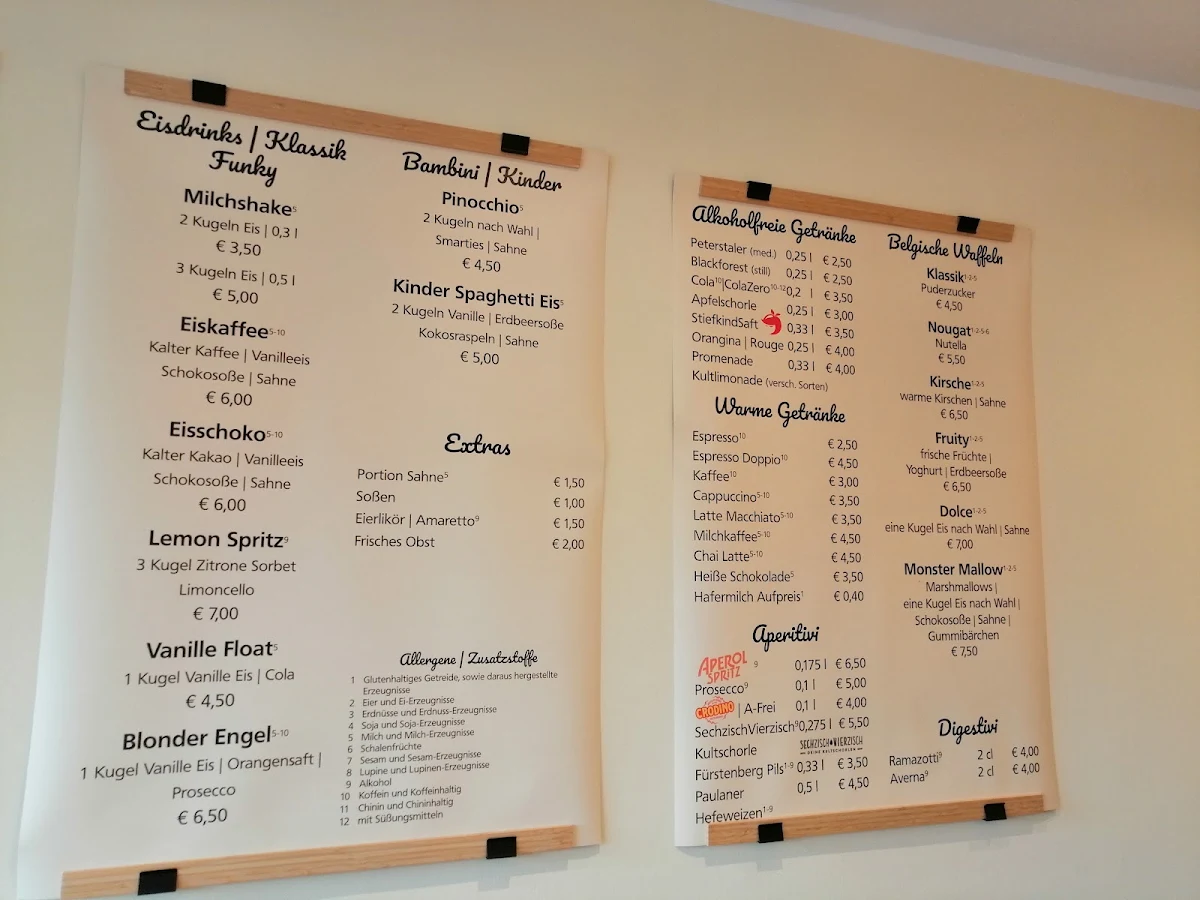 Eisdrinks | Klassik
Funky
Milchshake5
2 Kugeln Eis | 0,3 l
€ 3,50
3 Kugeln Eis | 0,5 l
€ 5,00
Eiskaffee5-10
Kalter Kaffee | Vanilleeis
Schokosoße | Sahne
€ 6,00
Eisschoko5-10
Kalter Kakao | Vanilleeis
Schokosoße | Sahne
€ 6,00
Lemon Spritz9
3 Kugel Zitrone Sorbet
Limoncello
€ 7,00
Vanille Float5
1 Kugel Vanille Eis | Cola
€ 4,50
Blonder Engel5-10
1 Kugel Vanille Eis | Orangensaft |
Prosecco
€ 6,50
Bambini | Kinder
Pinocchio5
2 Kugeln nach Wahl |
Smarties | Sahne
€ 4,50
Kinder Spaghetti Eis5
2 Kugeln Vanille | Erdbeersoße
Kokosraspeln | Sahne
€ 5,00
Extras
Portion Sahne5 € 1,50
Soßen € 1,00
Eierlikör | Amaretto9 € 1,50
Frisches Obst € 2,00
Allergene | Zusatzstoffe
1 Glutenhaltiges Getreide, sowie daraus hergestellte
Erzeugnisse
2 Eier und Ei-Erzeugnisse
3 Erdnüsse und Erdnuss-Erzeugnisse
4 Soja und Soja-Erzeugnisse
5 Milch und Milch-Erzeugnisse
6 Schalenfrüchte
7 Sesam und Sesam-Erzeugnisse
8 Lupine und Lupinen-Erzeugnisse
9 Alkohol
10 Koffein und Koffeinhaltig
11 Chinin und Chininhaltig
12 mit Süßungsmitteln
Alkoholfreie Getränke
Peterstaler (med.) 0,25 l € 2,50
Blackforest (still) 0,25 l € 2,50
Cola10|ColaZero10-12 0,2 l € 3,50
Apfelschorle 0,25 l € 3,00
StiefkindSaft 0,33 l € 3,50
Orangina | Rouge 0,25 l € 4,00
Promenade 0,33 l € 4,00
Kultlimonade (versch. Sorten)
Warme Getränke
Espresso10 € 2,50
Espresso Doppio10 € 4,50
Kaffee10 € 3,00
Cappuccino5-10 € 3,50
Latte Macchiato5-10 € 3,50
Milchkaffee5-10 € 4,50
Chai Latte5-10 € 4,50
Heiße Schokolade5 € 3,50
Hafermilch Aufpreis1 € 0,40
Aperitivi
APEROL SPRITZ 9 0,175 l € 6,50
Prosecco9 0,1 l € 5,00
CRODINO | A-Frei 0,1 l € 4,00
SechzischVierzisch9 0,275 l € 5,50
Kultschorle SECHZISCH VIERZISCH
Fürstenberg Pils1-9 0,33 l € 3,50
Paulaner 0,5 l € 4,50
Hefeweizen1-9
Belgische Waffeln
Klassik1-2-5
Puderzucker
€ 4,50
Nougat1-2-5-6
Nutella
€ 5,50
Kirsche1-2-5
warme Kirschen | Sahne
€ 6,50
Fruity1-2-5
frische Früchte |
Yoghurt | Erdbeersoße
€ 6,50
Dolce1-2-5
eine Kugel Eis nach Wahl | Sahne
€ 7,00
Monster Mallow1-2-5
Marshmallows |
eine Kugel Eis nach Wahl |
Schokosoße | Sahne |
Gummibärchen
€ 7,50
Digestivi
Ramazotti9 2 cl € 4,00
Averna9 2 cl € 4,00